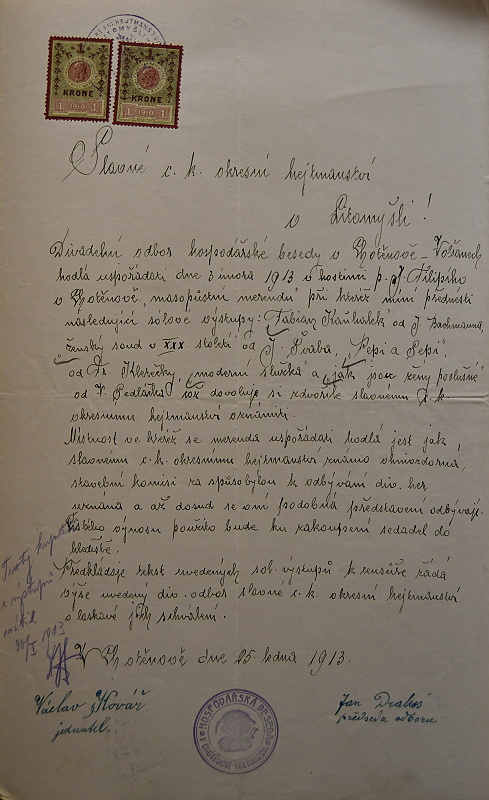 KRONE KRONE
1 1910 1 1 1910 1
Slavné c. k. okresní hejtmanství
v Litomyšli!
Divadelní odbor hospodářské besedy v Chotěnově-Volšanech
hodlá uspořádati dne 3 února 1913 v hostinci p. J. Filipiho
v Chotěnově „masopůstní merendu" při kteréž míní přednésti
následující sólové výstupy: „Fabian Kauhálek" od J. Bachmanna,
ženský soud v XXX. století od J. Švába, „Pepi a Pepi",
od Fr. „moderní služka" a „jak jsou ženy poslušné"
od V. Sedláčka což dovoluje si zdvořile slavnému c. k.
okresnímu hejtmanství oznámiti.
Místnost ve kteréž se merenda uspořádati hodlá jest jak
slavnému c. k. okresnímu hejtmanství známo ohnivzdorná,
stavební komisí za spůsobylou k odbývání div. her
uznána a až dosud se v ní podobná představení odbývají.
čistého výnosu použito bude ku zakoupení sedadel do
Předkládaje tekst uvedených sol. výstupů k censuře žádá
výše uvedený div. odbor slavné c. k. okresní hejtmanství
o laskavé jich schválení.
V Chotěnově dne 25. ledna 1913.
Texty
z výstupů
1913
Václav Kovář
jednatel.
Jan
předseda odboru
HOSPODÁŘSKÁ BESEDA
V CHOTĚNOVĚ-VOLŠANECH